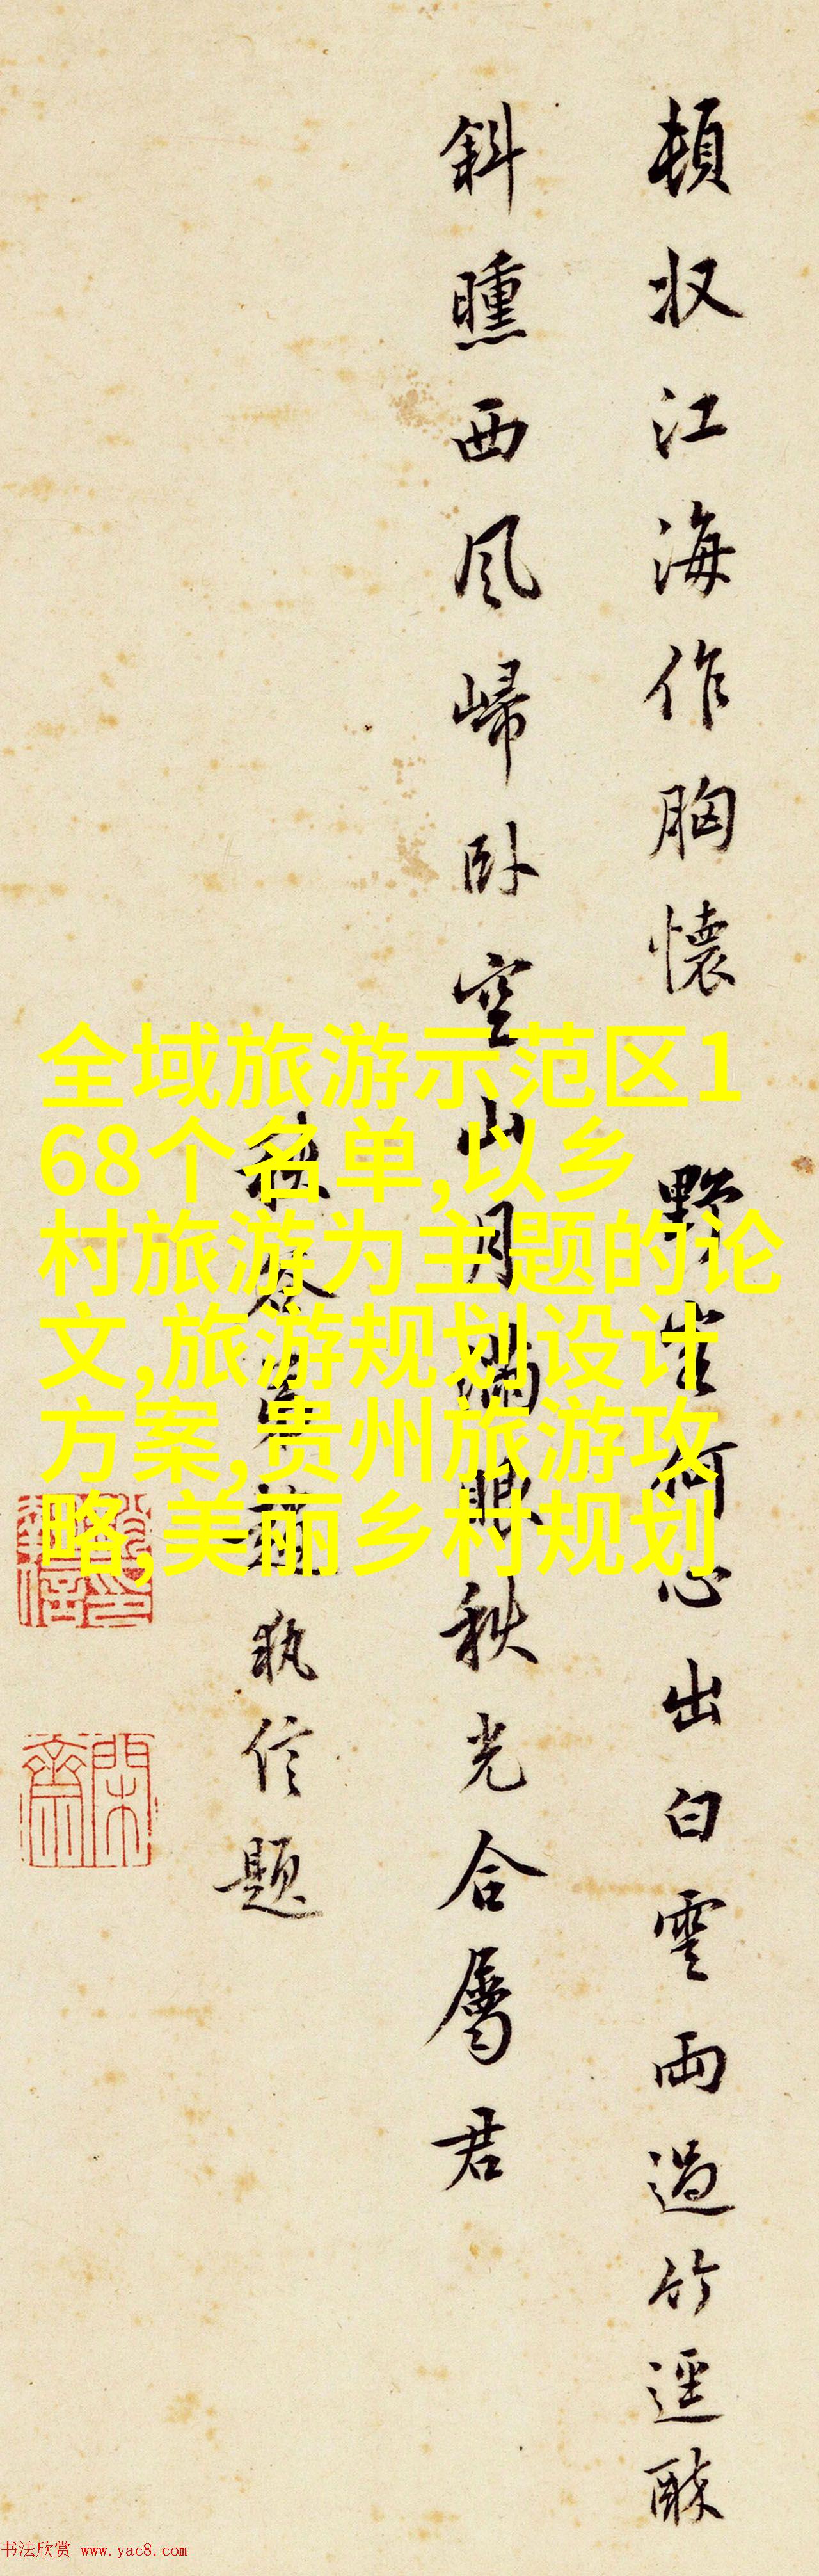 頓収江海作胸懷野何心出白雲雨過竹逕
斜曛西风歸卧空山月满眼秋光合屬君
秋谷趙执信题
閑齋
全域旅游示范区1
68个名单,以乡
村旅游为主题的论
文,旅游规划设计
方案,贵州旅游攻
略,美丽乡村规划
书法欣赏 www.yac8.com